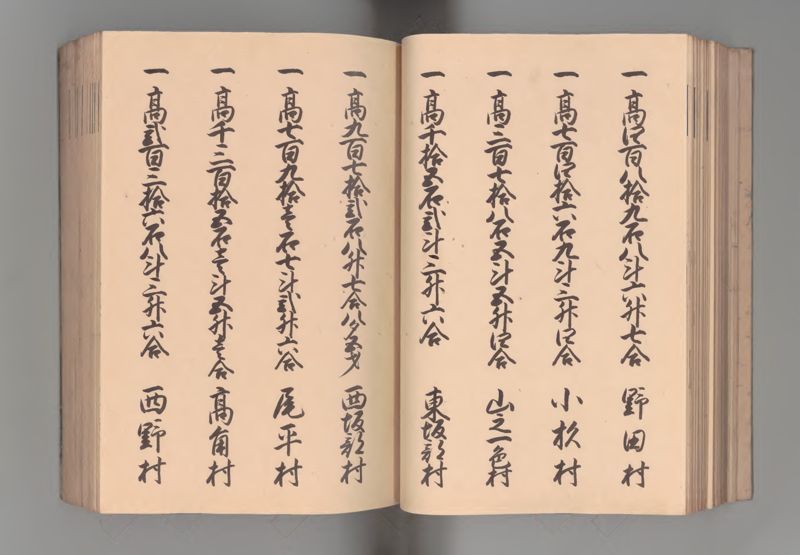 一 高四百八拾九石八斗六升七合 野田村
一 高七百四拾六石九斗三升四合 小杉村
一 高三百七拾八石五斗五升四合 山之一色村
一 高千拾五石弐斗三升六合 東坂部村
一 高九百七拾弐石八升七合八夕五才 西坂部村
一 高七百九拾壱石七斗弐升六合 尾平村
一 高千三百拾五石壱斗五升壱合 高角村
一 高弐百三拾六石八斗三升六合 西野村